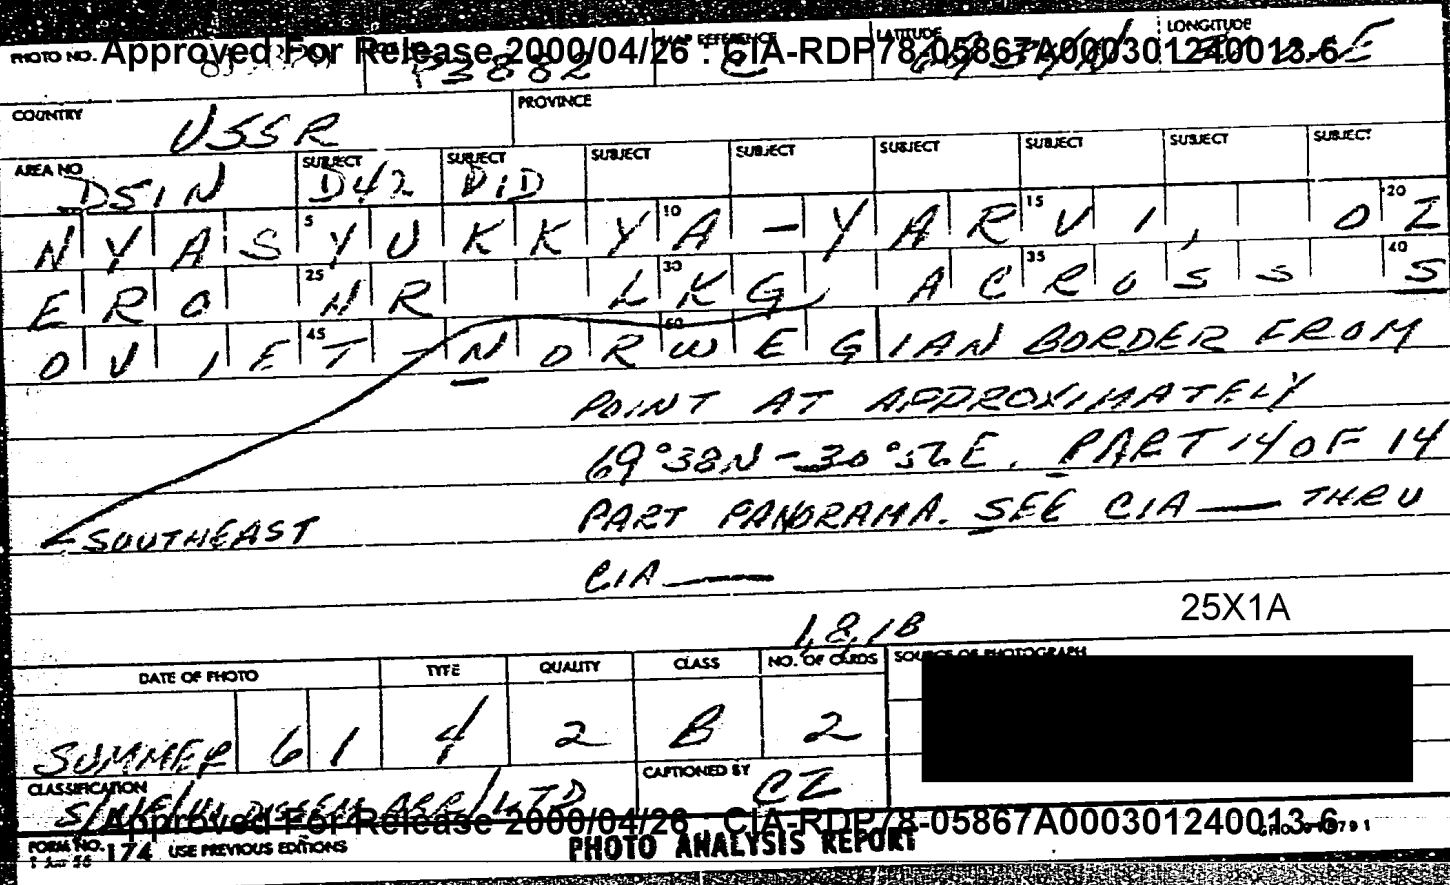 PHOTO NO. Approved For Release 2000/04/26 : CIA-RDP78-05867A000301240013-6
MAP REFERENCE LATITUDE LONGITUDE
P3882 C E
COUNTRY USSR PROVINCE
AREA NO D51N SUBJECT D42 SUBJECT DID SUBJECT SUBJECT SUBJECT SUBJECT SUBJECT SUBJECT
5 10 15 20
NYASYUKKYA-YARVI, OZ
25 30 35 40
ERO NR LKG, ACROSS S
45 50
OVIET-NORWEGIAN BORDER FROM
POINT AT APPROXIMATELY
69°38N-30° E. PART 14 OF 14
PART PANORAMA. SEE CIA — THRU
SOUTHEAST
CIA —
25X1A
1,8,1B
DATE OF PHOTO TYPE QUALITY CLASS NO. OF CARDS SOURCE OF PHOTOGRAPH
SUMMER 61 4 2 B 2
CLASSIFICATION CAPTIONED BY CZ
Approved For Release 2000/04/26 : CIA-RDP78-05867A000301240013-6
FORM NO. 174 USE PREVIOUS EDITIONS PHOTO ANALYSIS REPORT